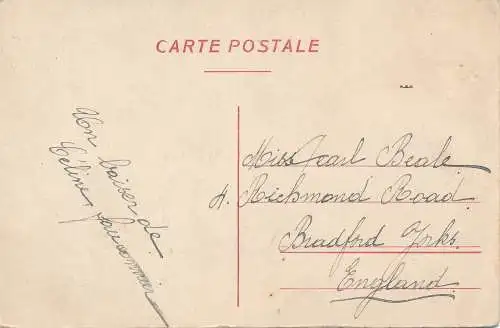 CARTE POSTALE
Un baiser de
Céline
Miss Pearl Beale
4. Richmond Road
Bradford Yorks.
England